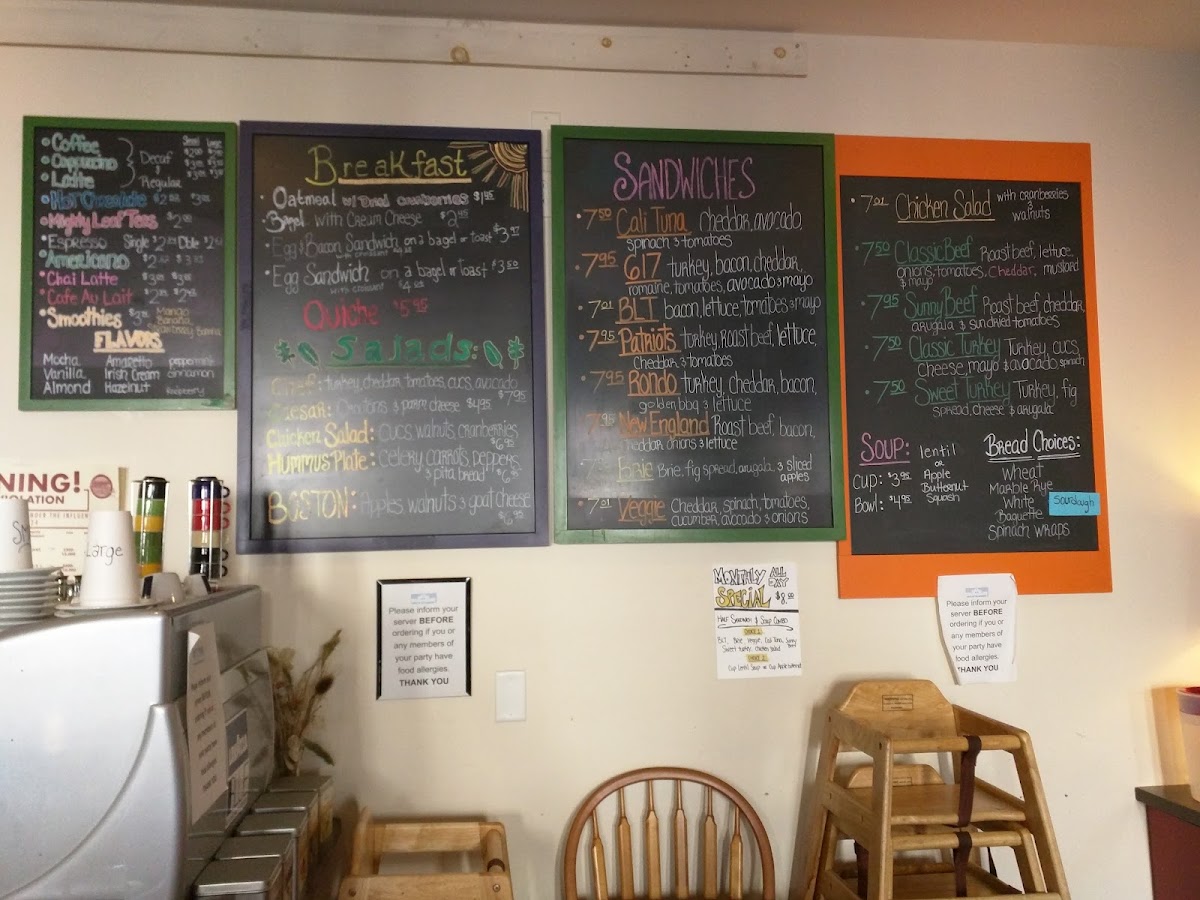 Small Large
Coffee
Cappucino
Latte
Decaf
Regular
Hot Chocolate
Mighty Leaf Teas $2
Espresso Single $2 Dble $2
Americano
Chai Latte
Cafe Au Lait
Smoothies
Mango
Banana
Strawberry Banana
FLAVORS
Mocha Amaretto peppermint
Vanilla Irish Cream cinnamon
Almond Hazelnut Raspberry
Breakfast
Oatmeal w/ Dried cranberries $1.95
Bagel with Cream Cheese $2.95
Egg & Bacon Sandwich on a bagel or toast
with croissant
Egg Sandwich on a bagel or toast $3.50
with croissant $4
Quiche $5.95
Salads:
Chef: turkey, cheddar, tomatoes, cucs, avocado
$7.95
Caesar: Croutons & parm cheese $4.95
Chicken Salad: Cucs, walnuts, cranberries
$6.95
Hummus Plate: Celery, carrots, peppers
& pita bread
BOSTON: Apples, walnuts & goat cheese
$6.95
SANDWICHES
7.50 Cali Tuna cheddar, avocado,
spinach & tomatoes
7.95 617 turkey, bacon, cheddar,
romaine, tomatoes, avocado & mayo
7.01 BLT bacon, lettuce, tomatoes & mayo
7.95 Patriots turkey, Roast beef, lettuce,
cheddar & tomatoes
7.95 Rondo turkey, cheddar, bacon,
golden bbq & lettuce
7.95 New England Roast beef, bacon,
cheddar onions & lettuce
Brie Brie, fig spread, arugala, & sliced
apples
7.01 Veggie Cheddar, spinach, tomatoes,
cucumber, avocado & onions
7.01 Chicken Salad with cranberries
&
walnuts
7.50 Classic Beef Roast beef, lettuce,
onions, tomatoes, Cheddar, mustard
& mayo
7.95 Sunny Beef Roast beef, cheddar,
arugala & sundried tomatoes
7.50 Classic Turkey Turkey, cucs,
cheese, mayo & avocado, spinach
7.50 Sweet Turkey Turkey, fig
spread, cheese & arugala
SOUP: lentil
or
Apple
Butternut
Squash
CUP: $3.95
Bowl: $4.95
Bread Choices:
Wheat
Marble Rye
White
Baguette
Spinach wraps
Sourdough
NING!
IOLATION
NDER THE INFLUEN
SM
Large
Please inform your
server BEFORE
ordering if you or
any members of
your party have
food allergies.
THANK YOU
MONTHLY ALL DAY
SPECIAL $8.00
HALF SANDWICH & SOUP COMBO
BLT, Brie, Veggie, Cali Tuna, Sunny Beef
Sweet turkey, chicken salad
Cup Lentil Soup or Cup Apple Butternut
Please inform your
server BEFORE
ordering if you or
any members of
your party have
food allergies.
THANK YOU